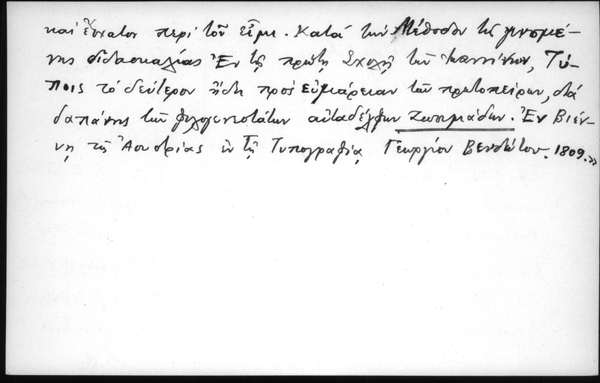 καὶ ἔνατον περὶ τοῦ εἶμι. Κατὰ τὴν Μέθοδον τῆς γινομέ-
νης διδασκαλίας Ἐν τῇ πρώτῃ Σχολῇ τῶν Ἰωαννίνων, Τύ-
ποις τὸ δεύτερον ἤδη πρὸς εὐμάρειαν τῶν πρωτοπείρων, διὰ
δαπάνης τῶν φιλογενεστάτων αὐταδέλφων Ζωσιμάδων. Ἐν Βιέν-
νῃ τῆς Ἀουστρίας ἐν τῇ Τυπογραφίᾳ Γεωργίου Βενδώτου. 1809.»